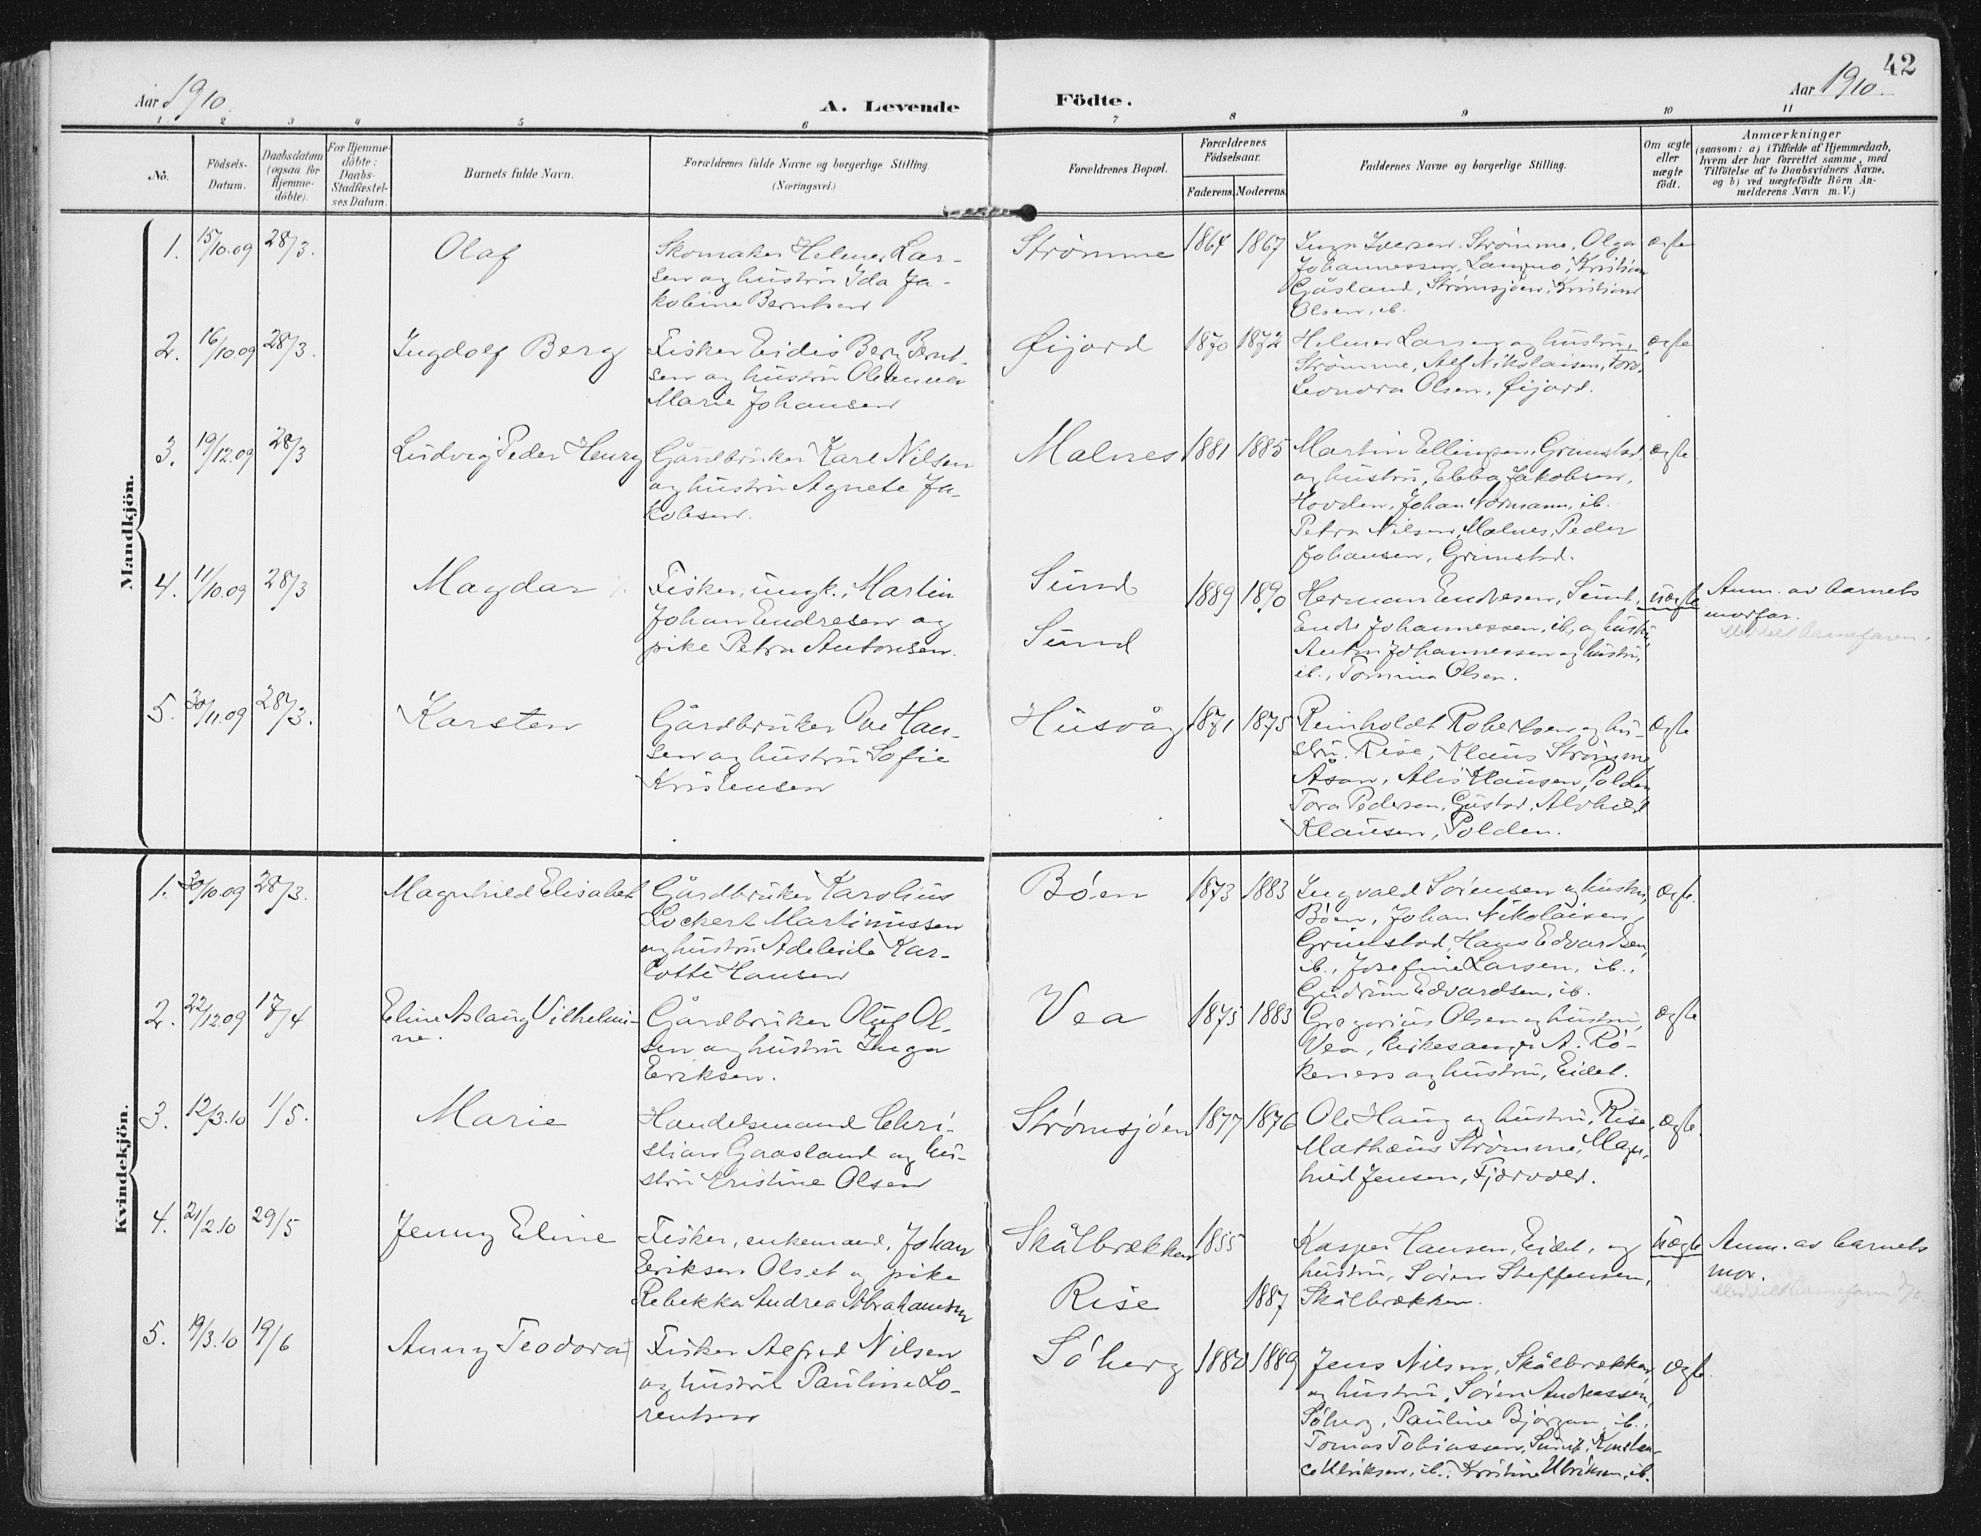 Aar 1910.
A. Levende
Födte.
Aar 1910.
42
1 2 3 4 5 6 7 8 9 10 11
No.
Födsels-
Datum.
Daabsdatum
(ogsaa for
Hjemme-
döbte).
For Hjemme-
döbte:
Daabs-
Stadfæstel-
ses Datum.
Barnets fulde Navn.
Forældrenes fulde Navne og borgerlige Stilling.
(Næringsvei.)
Forældrenes Bopæl.
Forældrenes
Födselsaar.
Faderens. Moderens.
Faddernes Navne og borgerlige Stilling.
Om ægte
eller
uægte
födt.
Anmærkninger
(saasom: a) i Tilfælde af Hjemmedaab,
hvem der har forrettet samme, med
Tilföielse af to Daabsvidners Navne,
og b) ved uægtefödte Börn An-
melderens Navn m. V.)
Mandkjön.
1. 15/10.09 28/3. Olaf
Skomaker Helmer Lar-
sen og hustru Ida Ja-
kobine Berntsen
Strømme 1864 1867
Inga Iversen, Strømme, Olga
Johannessen, Langmo, Kristian
Gåsland, Strømsjøen, Kristiane
Olsen, ib.
ægte
2. 16/10.09 28/3. Ingdolf Berg
Fisker Eidis Berg Bernt-
sen og hustru Oleanna
Marie Johansen
Øijord 1870 1872
Helmer Larsen og hustru,
Strømme, Alf Nikolaisen,
Leonora Olsen, Øijord.
ægte
3. 19/12.09 28/3 Ludvig Peder Henry
Gårdbruker Karl Nilsen
og hustru Agnete Ja-
kobsen.
Malnes 1881 1885
Martin Ellingsen, Grimstad,
og hustru, Ebba Jakobsen,
Hovden, Johan Normann, ib.
Petra Nilsen, Malnes, Peder
Johansen, Grimstad.
ægte
4. 11/10.09 28/3 Magdar
Fisker, ungk., Martin
Johan Endresen og
pike Petra Antonsen.
Sund
Sund
1889 1890
Herman Endresen, Sund,
Endre Johannessen, ib., og hustru,
Anton Johannessen og hustru,
ib., Tomina Olsen.
uægte
Anm. av barnets
morfar.
Meddelt barnefaren.
5. 30/11.09 28/3. Karsten
Gårdbruker Ove Han-
sen og hustru Sofie
Kristensen
Husvåg 1871 1875
Reinholdt Robertsen og hu-
stru, Rise, Klaus Strømme
Åsan, Alis Klausen, Polden
Tora Pedersen, Gustad, Alvhild
Klausen, Polden.
ægte
Kvindekjön.
1. 30/10.09 28/3. Magnhild Elisabet
Gårdbruker Karolius
Lockert Martinussen
og hustru Adeleide Kar-
lotte Hansen
Bøen 1873 1883
Ingvald Sørensen og hustru,
Bøen, Johan Nikolaisen,
Grimstad, Hans Edvardsen,
ib., Josefine Larsen, ib.,
Gudrun Edvardsen, ib.
ægte.
2. 22/12.09 17/4 Eline Aslaug Vilhelmi-
ne.
Gårdbruker Oluf Ol-
sen og hustru Inga
Eriksen.
Vea 1875 1883
Gregorius Olsen og hustru,
Vea, kirkesanger A. Rø-
kenes og hustru, Eidet.
ægte
3. 12/3.10 1/5. Marie
Handelsmand Chri-
stian Gaasland og hu-
stru Kristine Olsen
Strømsjøen 1877 1876
Ole Haug og hustru, Rise,
Mathæus Strømme, Magn-
hild Jensen, Fjærvold.
ægte.
4. 21/2.10 29/5 Jenny Eline
Fisker, enkemand, Johan
Eriksen Olset og pike
Rebekka Andrea Abrahamsen
Skålbrækken 1855
Rise 1887
Kasper Hansen, Eidet, og
hustru, Søren Steffensen,
Skålbrækken.
uægte
Anm. av barnets
mor.
Meddelt barnefaren
5. 19/3.10 19/6 Anny Teodora
Fisker Alfred Nilsen
og hustru Pauline Lo-
rentsen
Søberg 1880 1889
Jens Nilsen, Skålbrækken
og hustru, Søren Andreassen,
Søberg, Pauline Bjørgan, ib.,
Tomas Tobiassen, Sund, Konstan-
ce Ulriksen, ib., Kristine Ulriksen, ib.
ægte